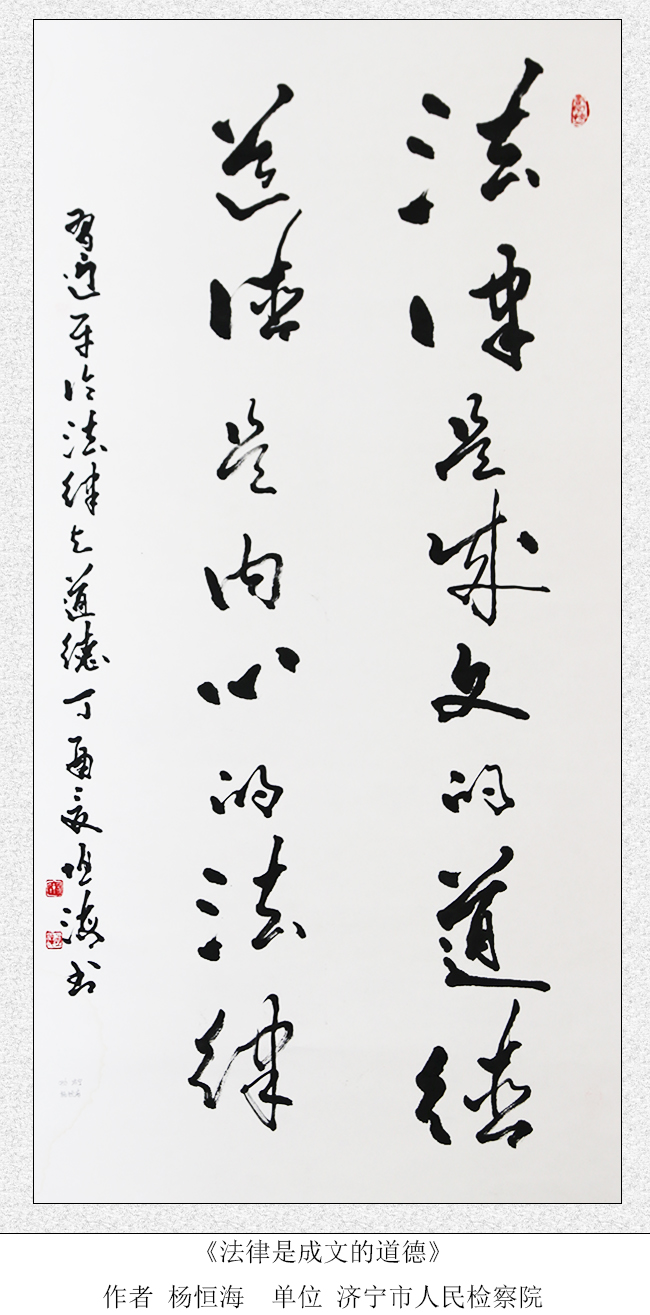 法律是成文的道德
道德是内心的法律
習近平论法律与道德丁酉夏恒海书
《法律是成文的道德》
作者 杨恒海 单位 济宁市人民检察院